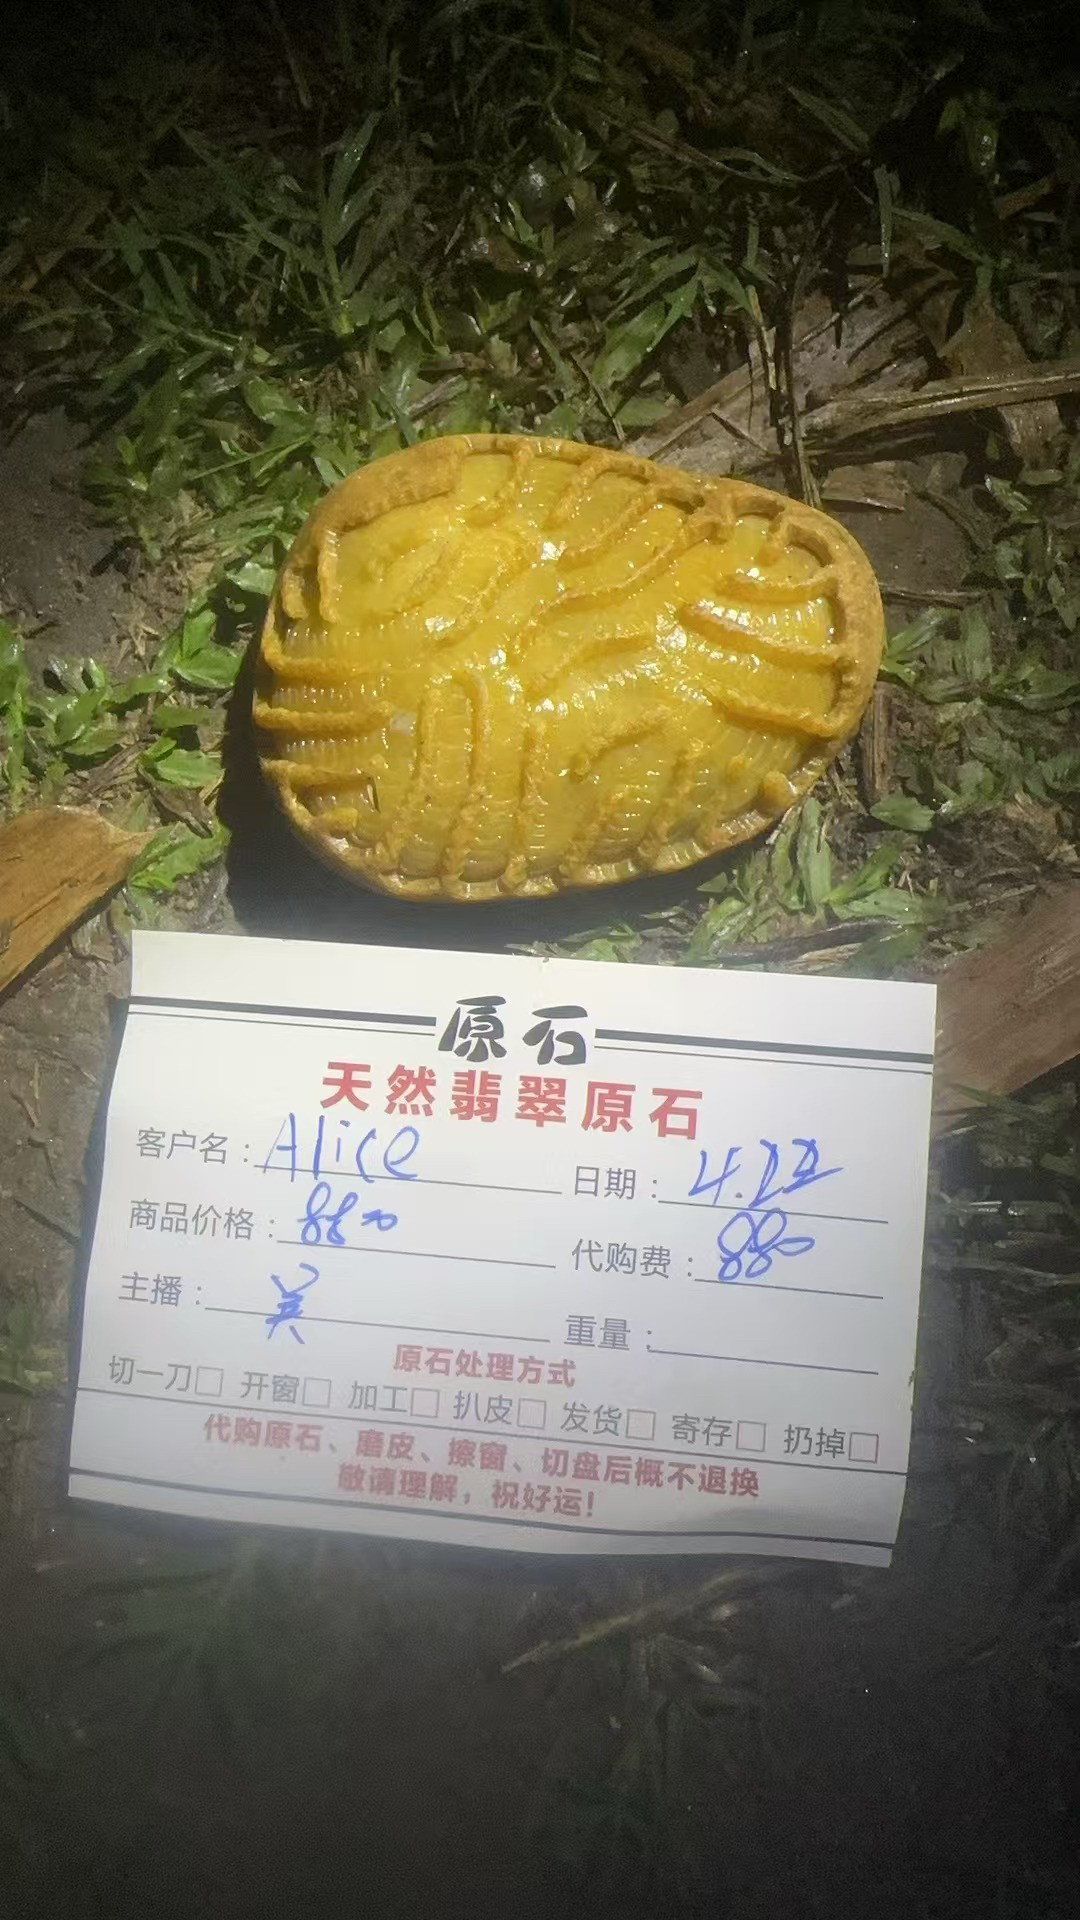 原石
天然翡翠原石
客户名：Alice 日期：4.22
商品价格：8800 代购费：880
主播：吴 重量：
原石处理方式
切一刀□ 开窗□ 加工□ 扒皮□ 发货□ 寄存□ 扔掉□
代购原石、磨皮、擦窗、切盘后概不退换
敬请理解，祝好运！